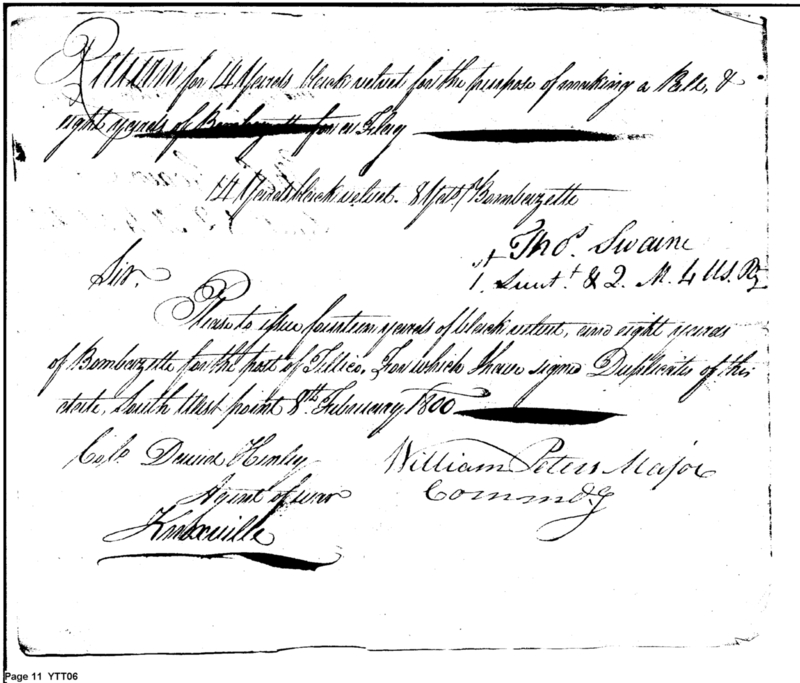 Return for 14 Yards black velvet for the purpose of making a Pall, &
eight yards of Bombazette for a Flag
14 Yards black velvet. 8 Yds. Bombazette
Thos. Swaine
1st Lieut. & Q. M. 4 US. Rt
Sir.
Please to issue fourteen yards of black velvet, and eight yards
of Bombazette for the post of Tellico, For which I have signed Duplicates of this
date, South West point 8th. February 1800
Colo. David Henley
Agent of war
Knoxville
William Peters Major
Commdg
Page 11 YTT06